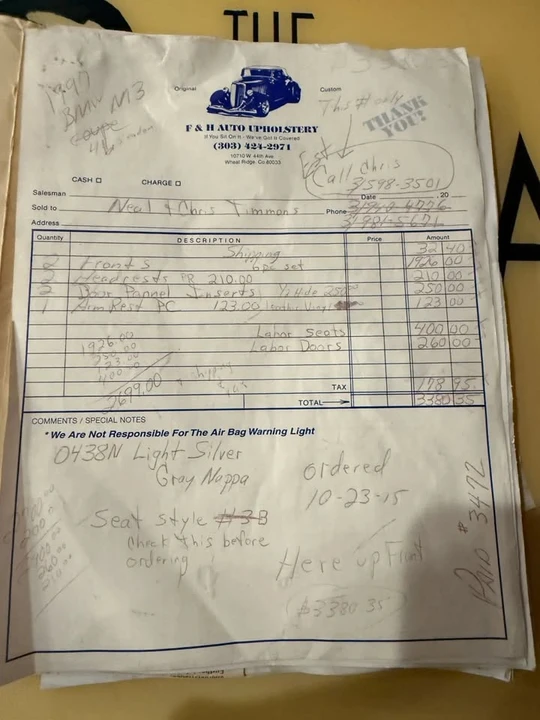 THE
1997
BMW M3
Original
Custom
This # only
THANK
YOU!
F & H AUTO UPHOLSTERY
If You Sit On It - We've Got It Covered
(303) 424-2971
10710 W. 44th Ave.
Wheat Ridge, Co. 80033
Call Chris
598-3501
CASH
CHARGE
Salesman
Date , 20
Sold to Neal & Chris Timmons Phone
Address
Quantity DESCRIPTION Price Amount
Shipping 32 40
2 Fronts 6pc set 1926 00
2 Headrests FR 210.00 210 00
Door Pannel Inserts 1/2 Hide 250 00
1 Arm Rest PC 123.00 Leather Vinyl 123 00
Labor Seats 400 00
Labor Doors 260 00
1926.00
250.00
123.00
400.00
2699.00 + shipping
TAX 178 95
TOTAL 3380 35
COMMENTS / SPECIAL NOTES
*We Are Not Responsible For The Air Bag Warning Light
0438N Light Silver
Gray Nappa
ordered
10-23-15
Seat Style #3B
check this before
ordering
Here up Front
$3380.35
Paid $3472